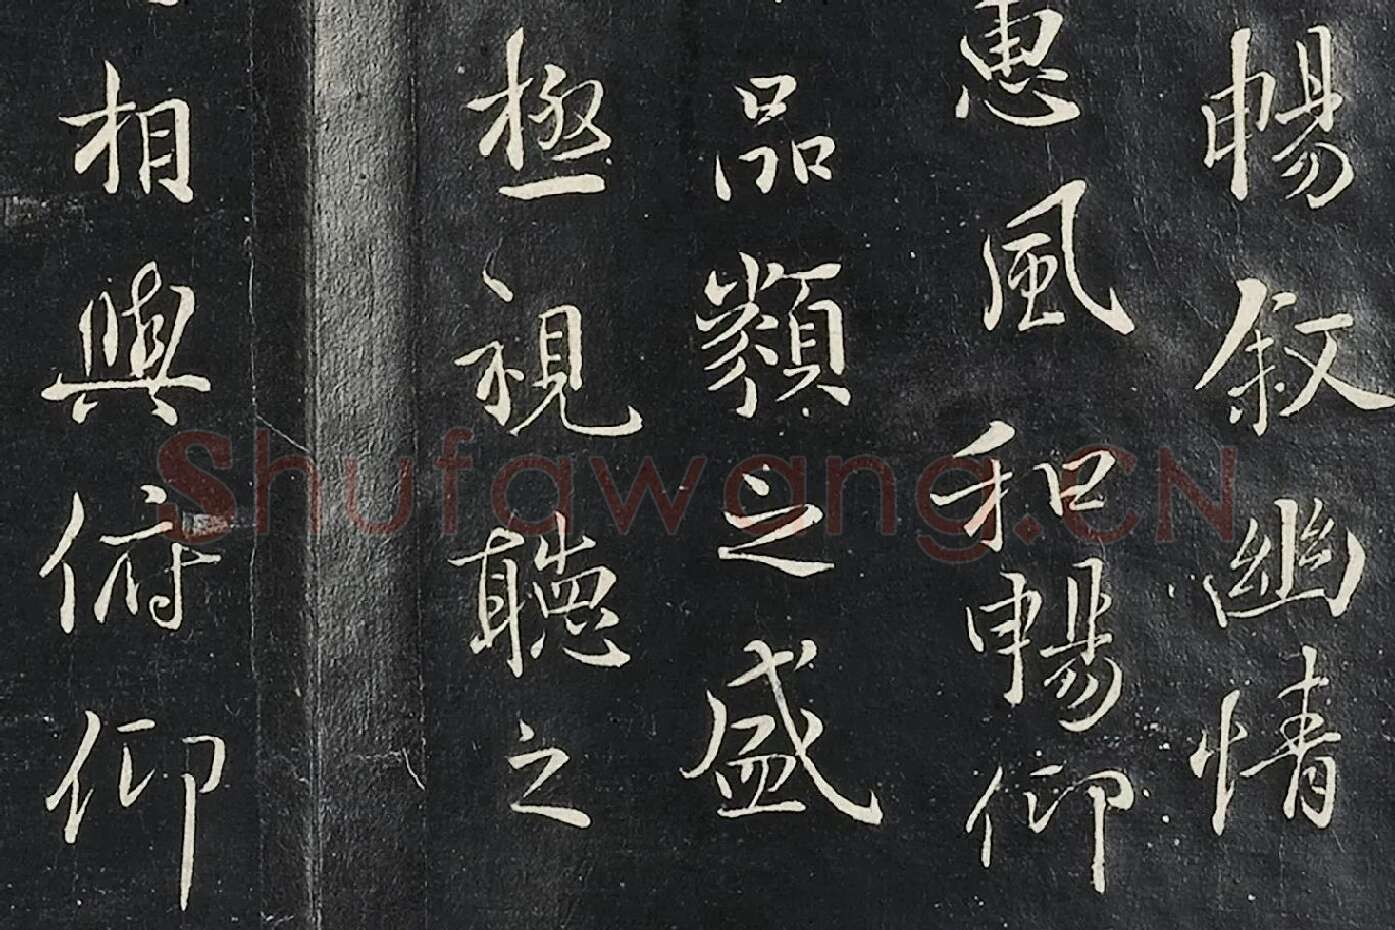 暢叙幽情
惠風和暢仰
品類之盛
極視聽之
相與俯仰
Shufawang.CN